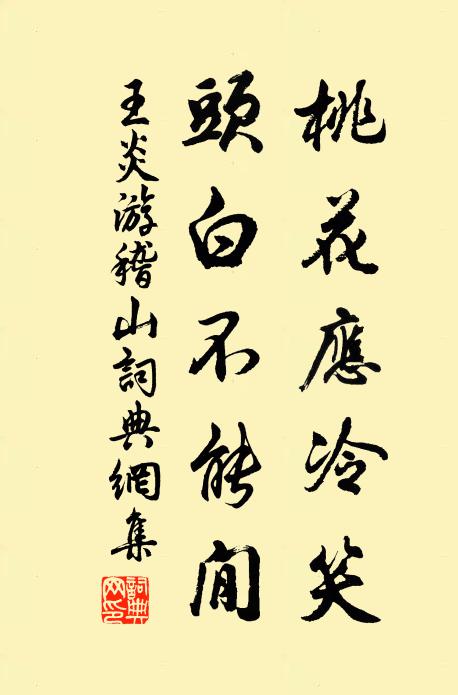 桃花應冷笑
頭白不能閒
王炎游稽山詞典網集
詞典網印